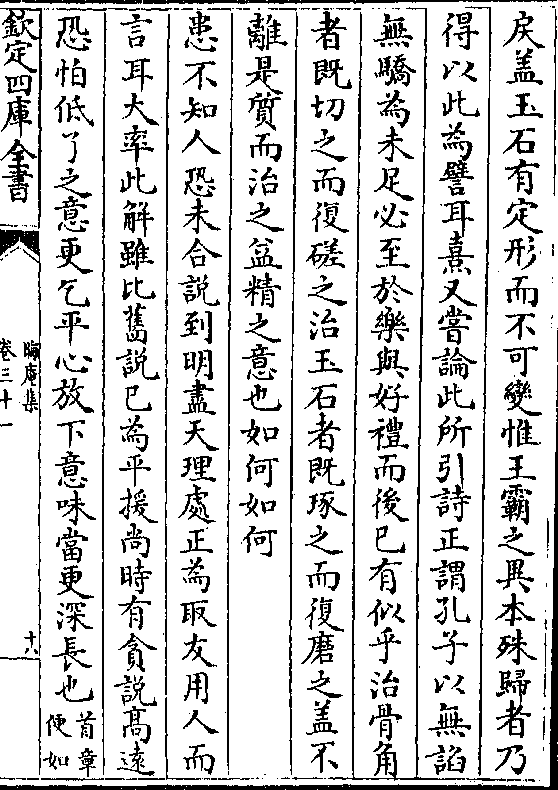 戾盖玉石有定形而不可變惟王霸之異本殊歸者乃
得以此為譬耳熹又嘗論此所引詩正謂孔子以無諂
無驕為未足必至於樂與好禮而後已有似乎治骨角
者既切之而復磋之治玉石者既琢之而復磨之蓋不
離是質而治之益精之意也如何如何
患不知人恐未合說到明盡天理處正為取友用人而
言耳大率此解雖比舊說已為平援尚時有貪說髙遠
恐怕低了之意更乞平心放下意味當更深長也首章
便如
欽定四庫全書
晦庵集
卷三十一
十八